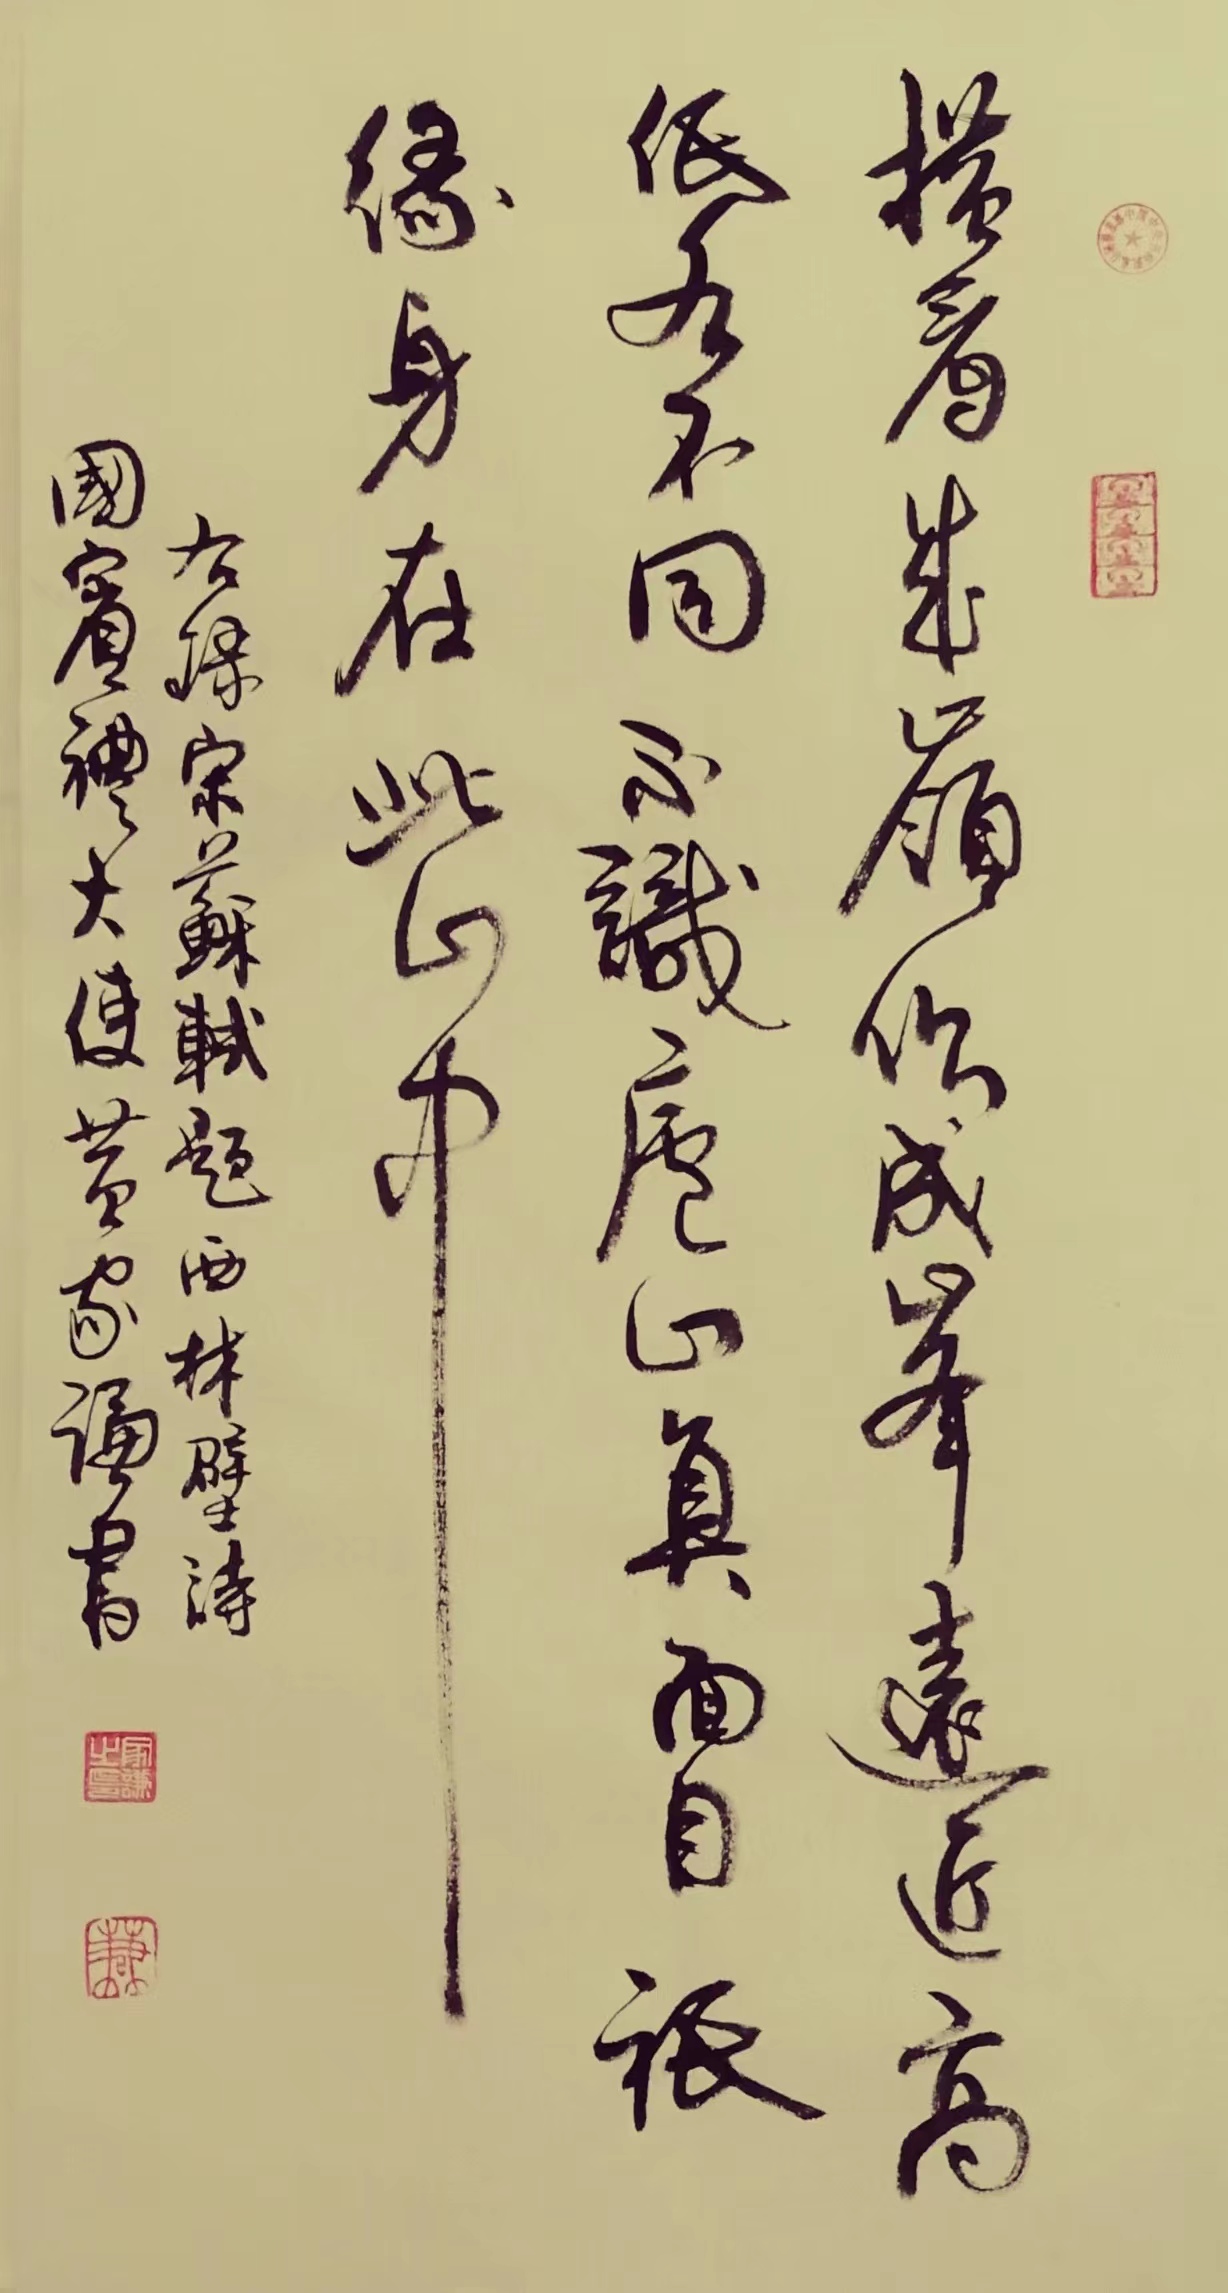 橫看成嶺側成峯遠近高
低各不同不識廬山真面目祇
緣身在此山中
右錄宋蘇軾題西林壁詩
國賓禮大使黃家謙書
家謙之印